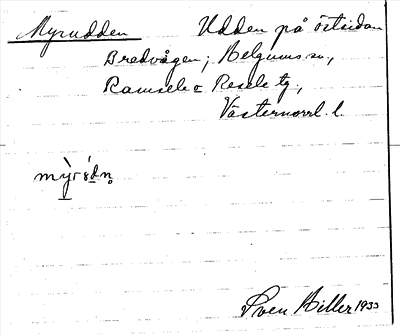 Myrudden Udden på östsidan
Bredvågen; Helgums sn,
Ramsele o Resele tg,
Västernorrl. l.
Sven Hiller 1933